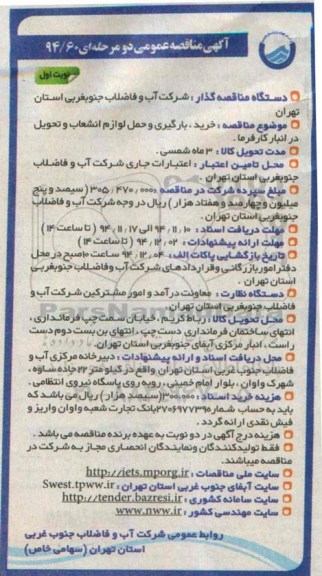 آگهی مناقصه عمومی دو مرحله‌ای ۹۴/۶۰
نوبت اول
دستگاه مناقصه گذار : شرکت آب و فاضلاب جنوبغربی استان
تهران
موضوع مناقصه : خرید ، بارگیری و حمل لوازم انشعاب و تحویل
در انبار کارفرما .
مدت تحویل کالا : ۳ ماه شمسی .
محل تامین اعتبار : اعتبارات جاری شرکت آب و فاضلاب
جنوبغربی استان تهران .
مبلغ سپرده شرکت در مناقصه : ۳۰۵/۴۷۰/۰۰۰ ( سیصد و پنج
میلیون و چهارصد و هفتاد هزار ) ریال در وجه شرکت آب و فاضلاب
جنوبغربی استان تهران .
مهلت دریافت اسناد : ۹۴/۱۱/۱۰ الی ۹۴/۱۱/۱۷ ( تا ساعت ۱۴ )
مهلت ارائه پیشنهادات : ۹۴/۱۲/۰۲ ( تا ساعت ۱۴ )
تاریخ بازگشایی پاکات الف : ۹۴/۱۲/۰۴ ساعت ۱۰ صبح در محل
دفتر امور بازرگانی و قراردادهای شرکت آب و فاضلاب جنوبغربی
استان تهران .
دستگاه نظارت : معاونت درآمد و امور مشترکین شرکت آب و
فاضلاب جنوبغربی استان تهران .
محل تحویل کالا : رباط کریم ، خیابان سمت چپ فرمانداری ،
انتهای ساختمان فرمانداری دست چپ ، انتهای بن بست دوم دست
راست ، انبار مرکزی آبفای جنوبغربی استان تهران
محل دریافت اسناد و ارائه پیشنهادات : دبیرخانه مرکزی آب و
فاضلاب جنوب غربی استان تهران واقع در کیلومتر ۲۲ جاده ساوه ،
شهرک واوان ، بلوار امام خمینی ، روبه روی پاسگاه نیروی انتظامی .
هزینه خرید اسناد : ۳۰۰/۰۰۰ (سیصد هزار ) ریال می باشد که
باید به حساب شماره ۲۷۰۶۹۷۷۳۹۵ بانک تجارت شعبه واوان واریز و
فیش نقدی ارائه گردد .
هزینه درج آگهی در دو نوبت به عهده برنده مناقصه می باشد .
فقط تولیدکنندگان و نمایندگان انحصاری مجاز به شرکت در
مناقصه میباشند .
سایت ملی مناقصات : http://iets.mporg.ir
سایت آبفای جنوب غربی استان تهران : Swest.tpww.ir
سایت سامانه کشوری : http://tender.bazresi.ir
سایت مهندسی کشور : www.nww.ir
روابط عمومی شرکت آب و فاضلاب جنوب غربی
استان تهران (سهامی خاص)